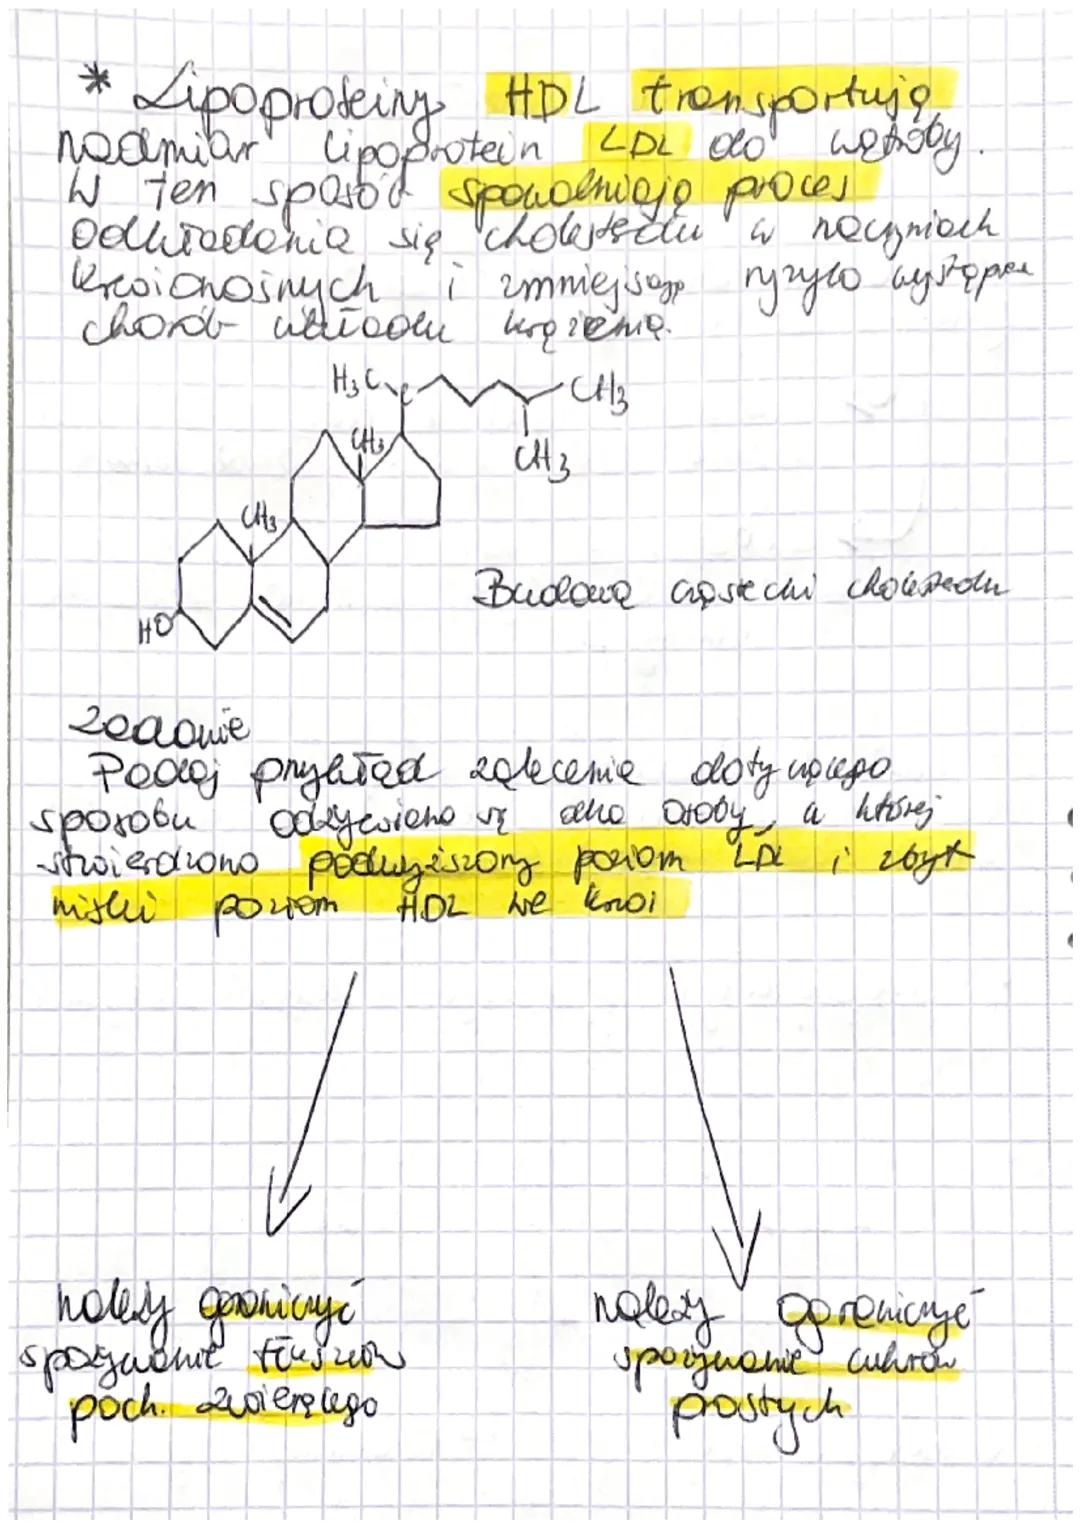 * Lipoproteiny HDL transportują
nadmiar lipoprotein LDL do wątroby.
W ten sposób spowalniają proces
odkładania się cholesterolu w naczyniach
krwionośnych i zmniejszają ryzyko występ
chorób układu krążenia.
H3C C CH3
CH3 CH3
CH3
HO
Budowa cząsteczki cholesterolu
Zadanie
Podaj przykład zalecenia dotyczącego
sposobu odżywiania się dla osoby, u której
stwierdzono podwyższony poziom LDL i zbyt
niski poziom HDL we krwi
należy ograniczyć
spożywanie tłuszczów
poch. zwierzęcego
należy ograniczyć
spożywanie cukrów
prostych